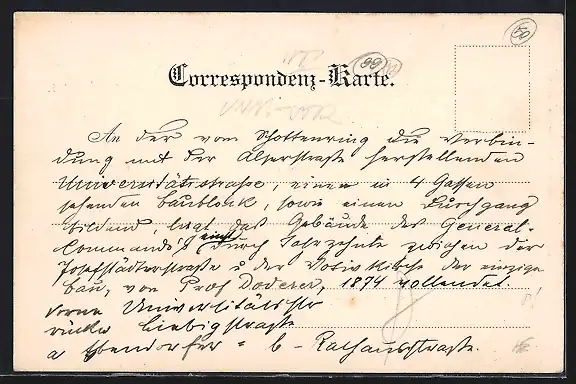 50
99
Correspondenz-Karte.
An der vom Schottenring die Verbin-
dung mit der Alserstraße herstellenden
Universitätsstraße, einen in 4 Gassen
sehenden Baublock, sowie einen Durchgang
bildend, liegt das Gebäude des General-
Commando's einst durch Jahrzehnte zwischen der
Josefstädterstraße u der Votivkirche der einzige
Bau, von Prof Doderer, 1874 vollendet.
vorne Universitätsstr
rückw Liebigstraße
a Ebendorfer = b - Rathausstraße.